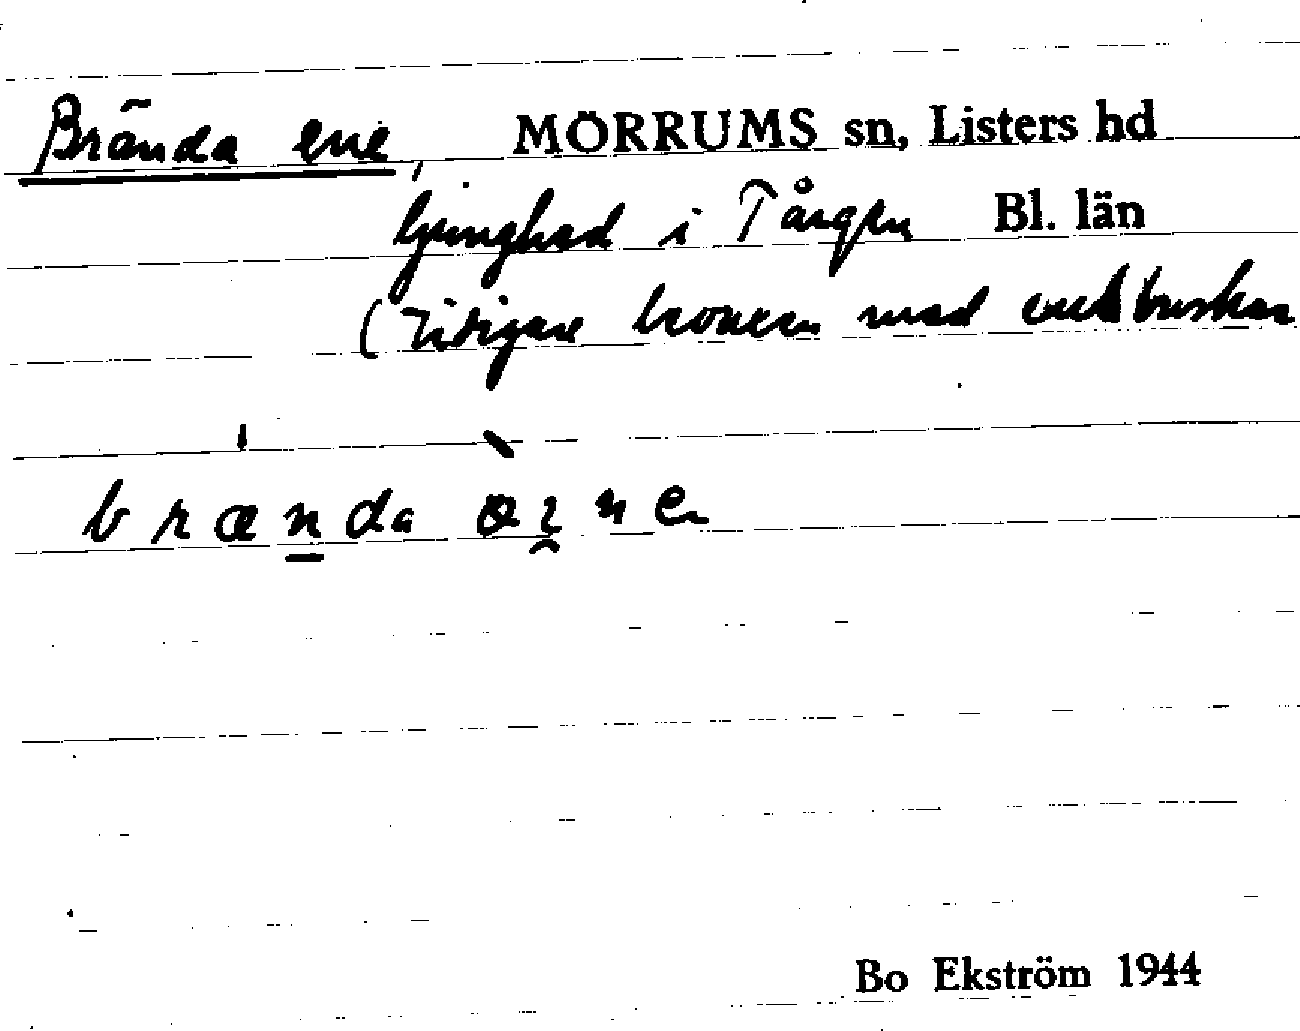 Brända ene, MÖRRUMS sn, Listers hd
ljunghed i Tårgen Bl. län
(Tidigare med enebuskar
brænda ene
Bo Ekström 1944